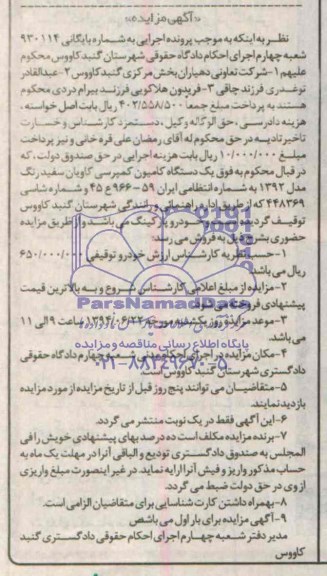 «آگهی مزایده»
نظر به اینکه به موجب پرونده اجرایی به شماره بایگانی ۹۳۰۱۱۴
شعبه چهارم اجرای احکام دادگاه حقوقی شهرستان گنبد کاووس محکوم
علیهم ۱-شرکت تعاونی دهیاران بخش مرکزی گنبد کاووس ۲-عبدالقادر
توغدری فرزند چاقی ۳-فریدون هلاکویی فرزند بیرام دردی محکوم
هستند به پرداخت مبلغ جمعا ۴۰۲/۵۵۸/۵۰۰ ریال بابت اصل خواسته،
هزینه دادرسی، حق الوکاله وکیل، دستمزد کارشناس و خسارت
تاخیر تادیه در حق محکوم له آقای رمضان علی قره خانی و نیز پرداخت
مبلغ ۱۰/۰۰۰/۰۰۰ ریال بابت هزینه اجرایی در حق صندوق دولت، که
در قبال محکوم به فوق یک دستگاه کامیون کمپرسی کاویان سفید رنگ
مدل ۱۳۹۲ به شماره انتظامی ایران ۵۹ - ۹۶۶ ع ۴۵ و شماره شاسی
۴۴۸۳۶۹ که از طریق اداره راهنمایی و رانندگی شهرستان گنبد کاووس
توقیف گردیده خودرو پارکینگ می باشد و از طریق مزایده
حضوری بشرح ذیل به فروش می رسد:
۱-حسب نظریه کارشناس ارزش خودرو توقیفی ۶۵۰/۰۰۰/۰۰۰
ریال می باشد.
۲-مزایده از مبلغ اعلامی کارشناس شروع و به بالاترین قیمت
پیشنهادی فروخته می شود.
ParsNamadData
۳-موعد مزایده روز یکشنبه مورخ ۱۳۹۴/۰۶/۲۲ ساعت ۹ الی ۱۱
می باشد.
پایگاه اطلاع رسانی مناقصه و مزایده
۴-مکان مزایده در اجرای احکام مدنی شعبه چهارم دادگاه حقوقی
دادگستری شهرستان گنبد کاووس است.
۰۲۱-۸۸۳۴۹۶۷۰-۵
۵-متقاضیان می توانند پنج روز قبل از تاریخ مزایده از مورد مزایده
بازدید نمایند.
۶-این آگهی فقط در یک نوبت منتشر می گردد.
۷-برنده مزایده مکلف است ده درصد بهای پیشنهادی خویش را فی
المجلس به صندوق دادگستری تودیع و الباقی آنرا در مهلت یک ماه به
حساب مذکور واریز و فیش آنرا ارایه نماید. در غیر اینصورت مبلغ واریزی
از وی در حق دولت ضبط می گردد.
۸-بهمراه داشتن کارت شناسایی برای متقاضیان الزامی است.
۹-آگهی مزایده برای بار اول می باشد
مدیر دفتر شعبه چهارم اجرای احکام حقوقی دادگستری گنبد
کاووس